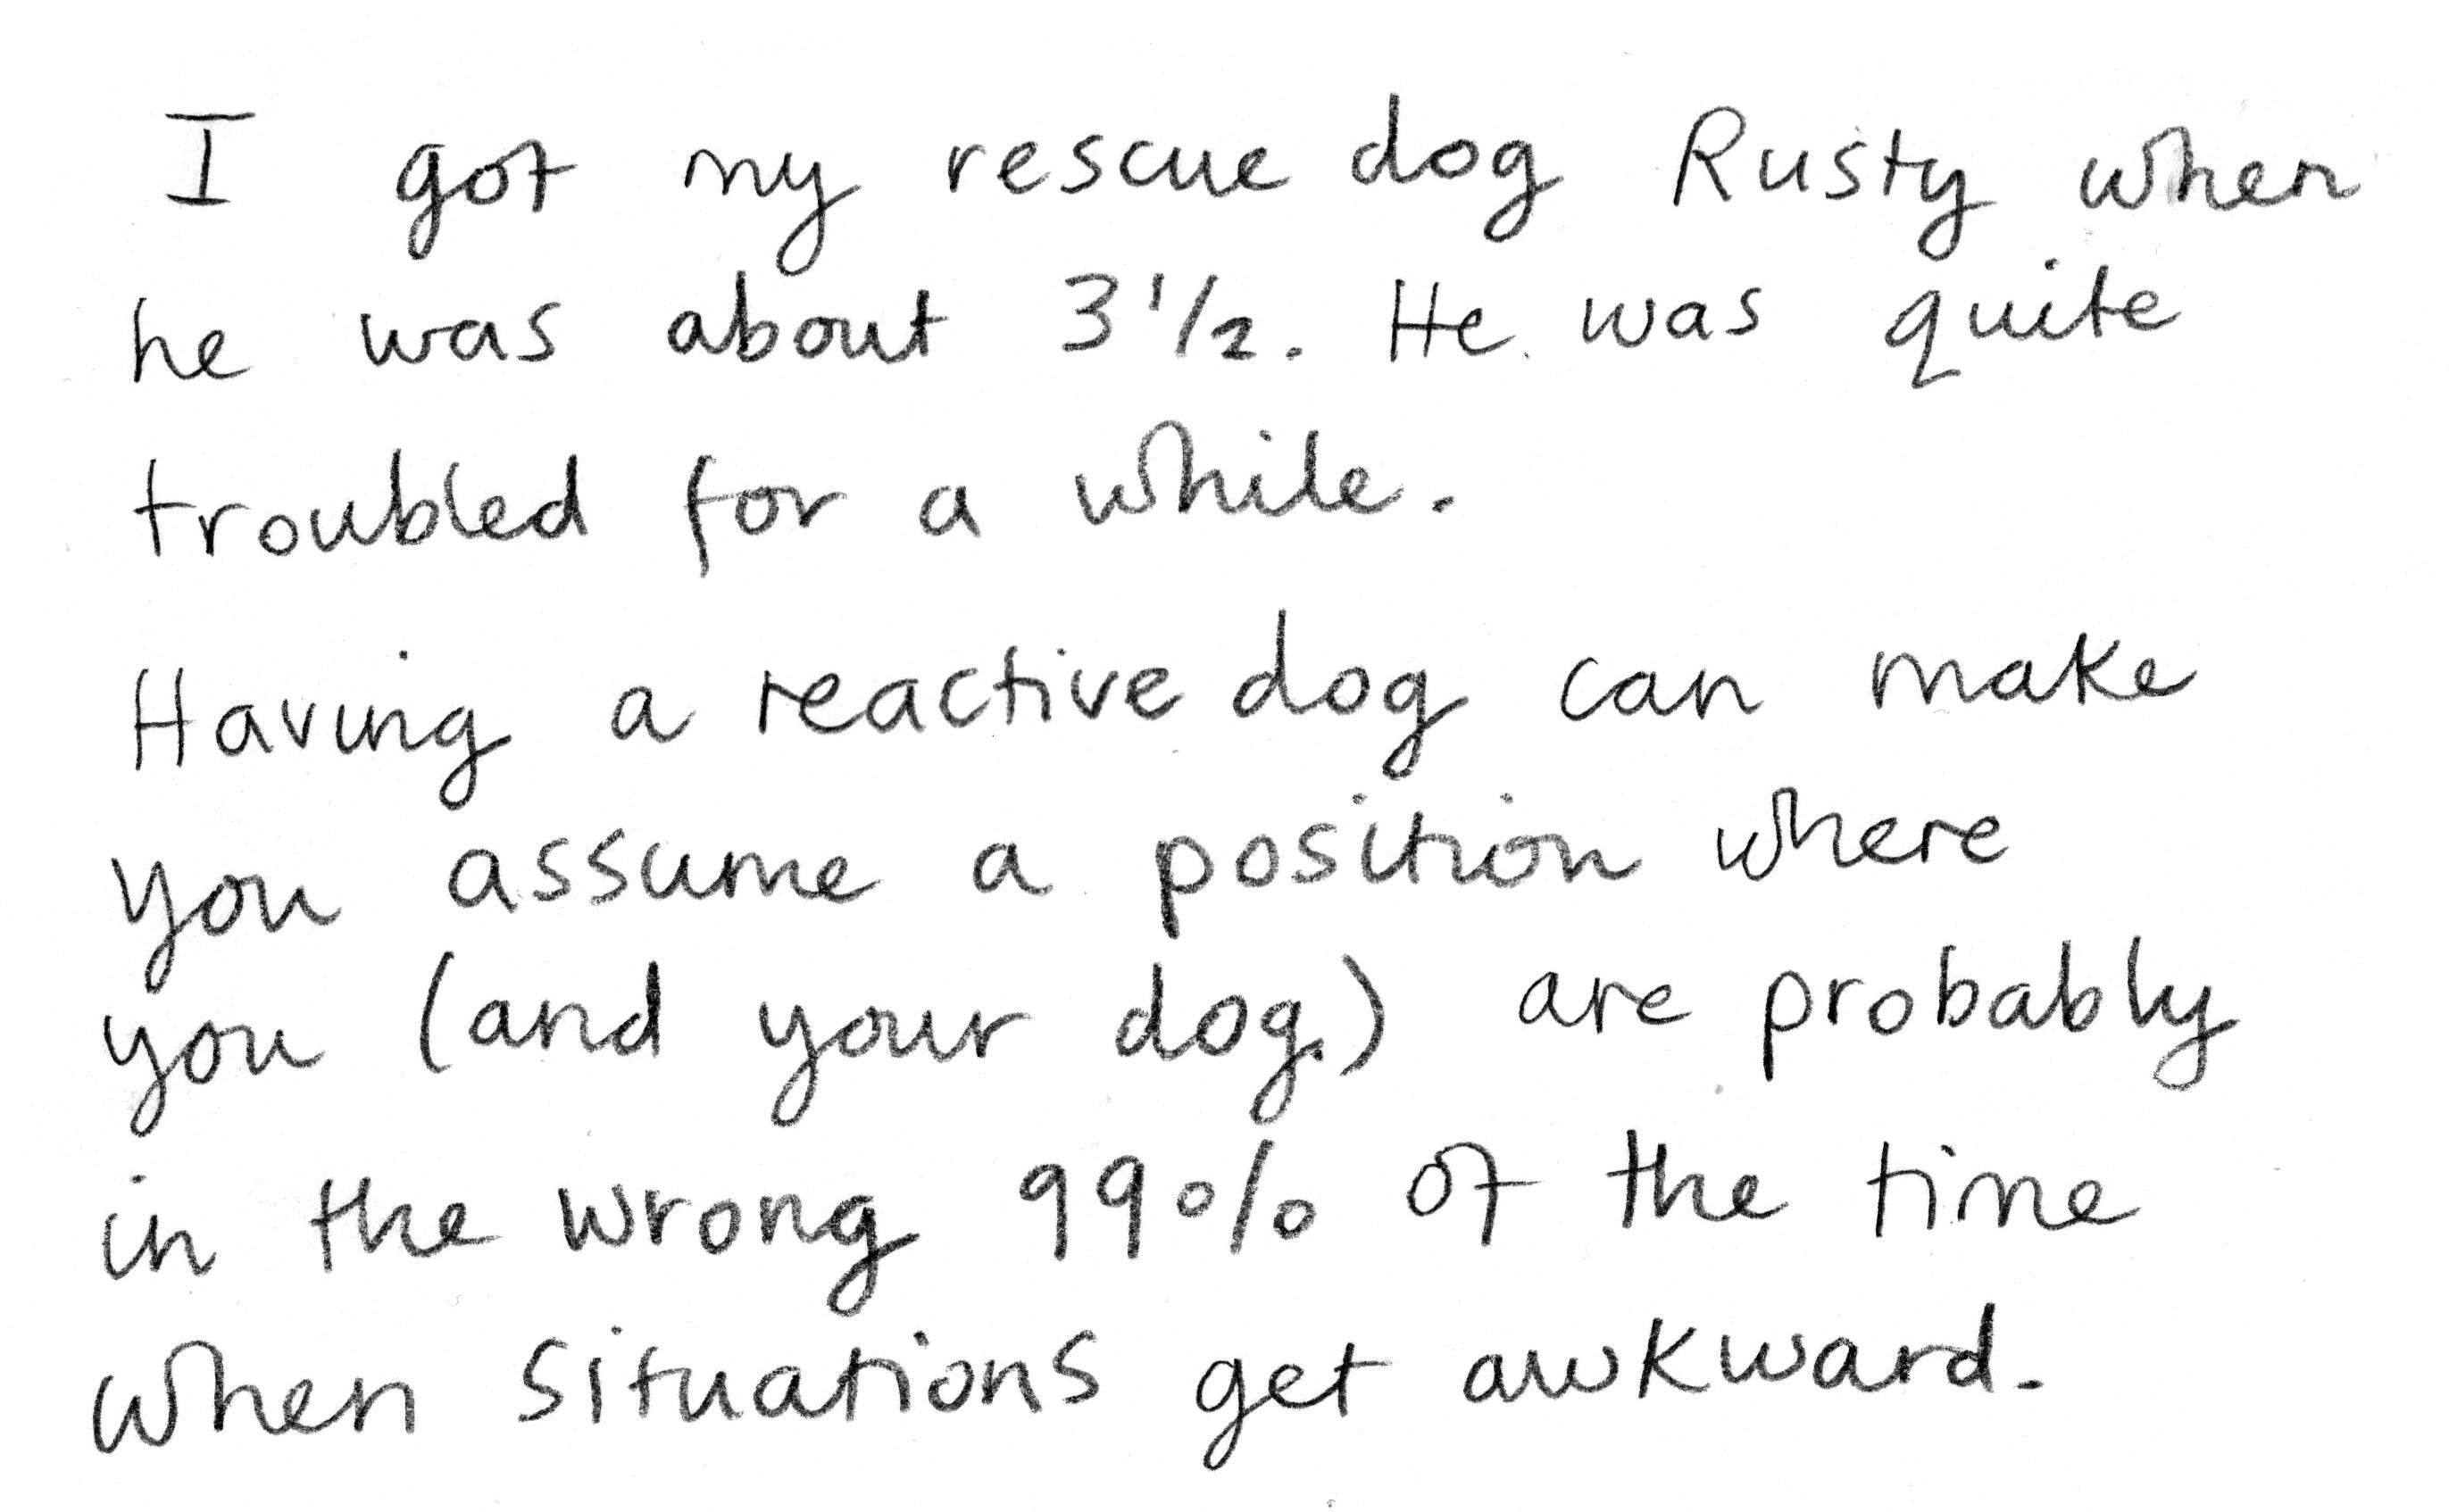 I got my rescue dog Rusty when
he was about 3 1/2. He was quite
troubled for a while.
Having a reactive dog can make
you assume a position where
you (and your dog) are probably
in the wrong 99% of the time
when situations get awkward.